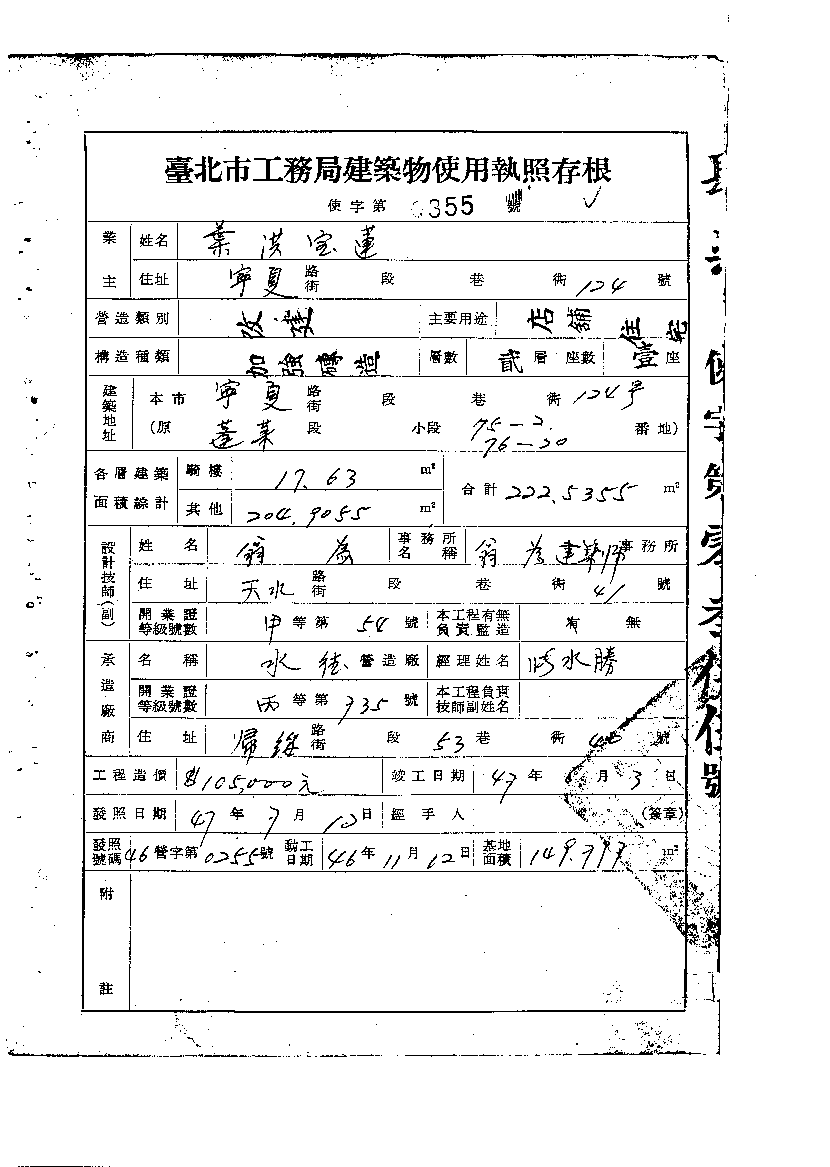 臺北市工務局建築物使用執照存根
使字第 0355 號
業主 姓名 葉洪宝蓮
住址 寧夏 路街 段 巷 衖 124 號
營造類別 改建 主要用途 店舖 住宅
構造種類 加強磚造 層數 貳層 座數 壹座
建築地址 本市 寧夏 路街 段 巷 衖 124号
(原 蓬萊 段 小段 75-2. 76-20 番地)
各層建築面積總計 騎樓 17.63 m² 合計 222.5355 m²
其他 204.9055 m²
設計技師(副) 姓名 翁為 事務所名稱 翁為建築師事務所
住址 天水 路街 段 巷 衖 41 號
開業證等級號數 甲等第 54 號 本工程有無負責監造 有 無
承造廠商 名稱 水 營造廠 經理姓名 水勝
開業證等級號數 丙等第 735 號 本工程負責技師副姓名
住址 歸綏 路街 段 53 巷 衖 號
工程造價 $105,000元 竣工日期 47年 月 3日
發照日期 47年 7月 12日 經手人 (簽章)
發照號碼 46營字第0255號 動工日期 46年11月12日 基地面積 149.797 m²
附註
使字第零叁伍伍號